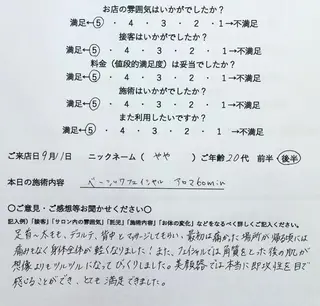 お店の雰囲気はいかがでしたか?
満足←⑤・4・3・2・1→不満足
接客はいかがでしたか?
満足←⑤・4・3・2・1→不満足
料金(値段的満足度)は妥当でしたか?
満足←⑤・4・3・2・1→不満足
施術はいかがでしたか?
満足←⑤・4・3・2・1→不満足
また利用したいですか?
満足←⑤・4・3・2・1→不満足
ご来店日 9月11日 ニックネーム( やや )ご年齢 20代 前半・後半
本日の施術内容 ベーシックフェイシャル アロマ60min
〇ご意見・ご感想等お聞かせください〇
記入例)「接客」「サロン内の雰囲気」「託児」「施術内容」「お体の変化」などをなるべく詳しくご記入ください。
足首〜太もも、デコルテ、背中とマッサージしてもらい、最初は痛かった場所が帰る頃には
痛みもなく身体全体が軽くなりました!また、フェイシャルでは角質をとった後の肌が
想像よりもツルツルになっていてびっくりしました。美顔器では本当に即効性を目で
感じることができ、とても満足できました。